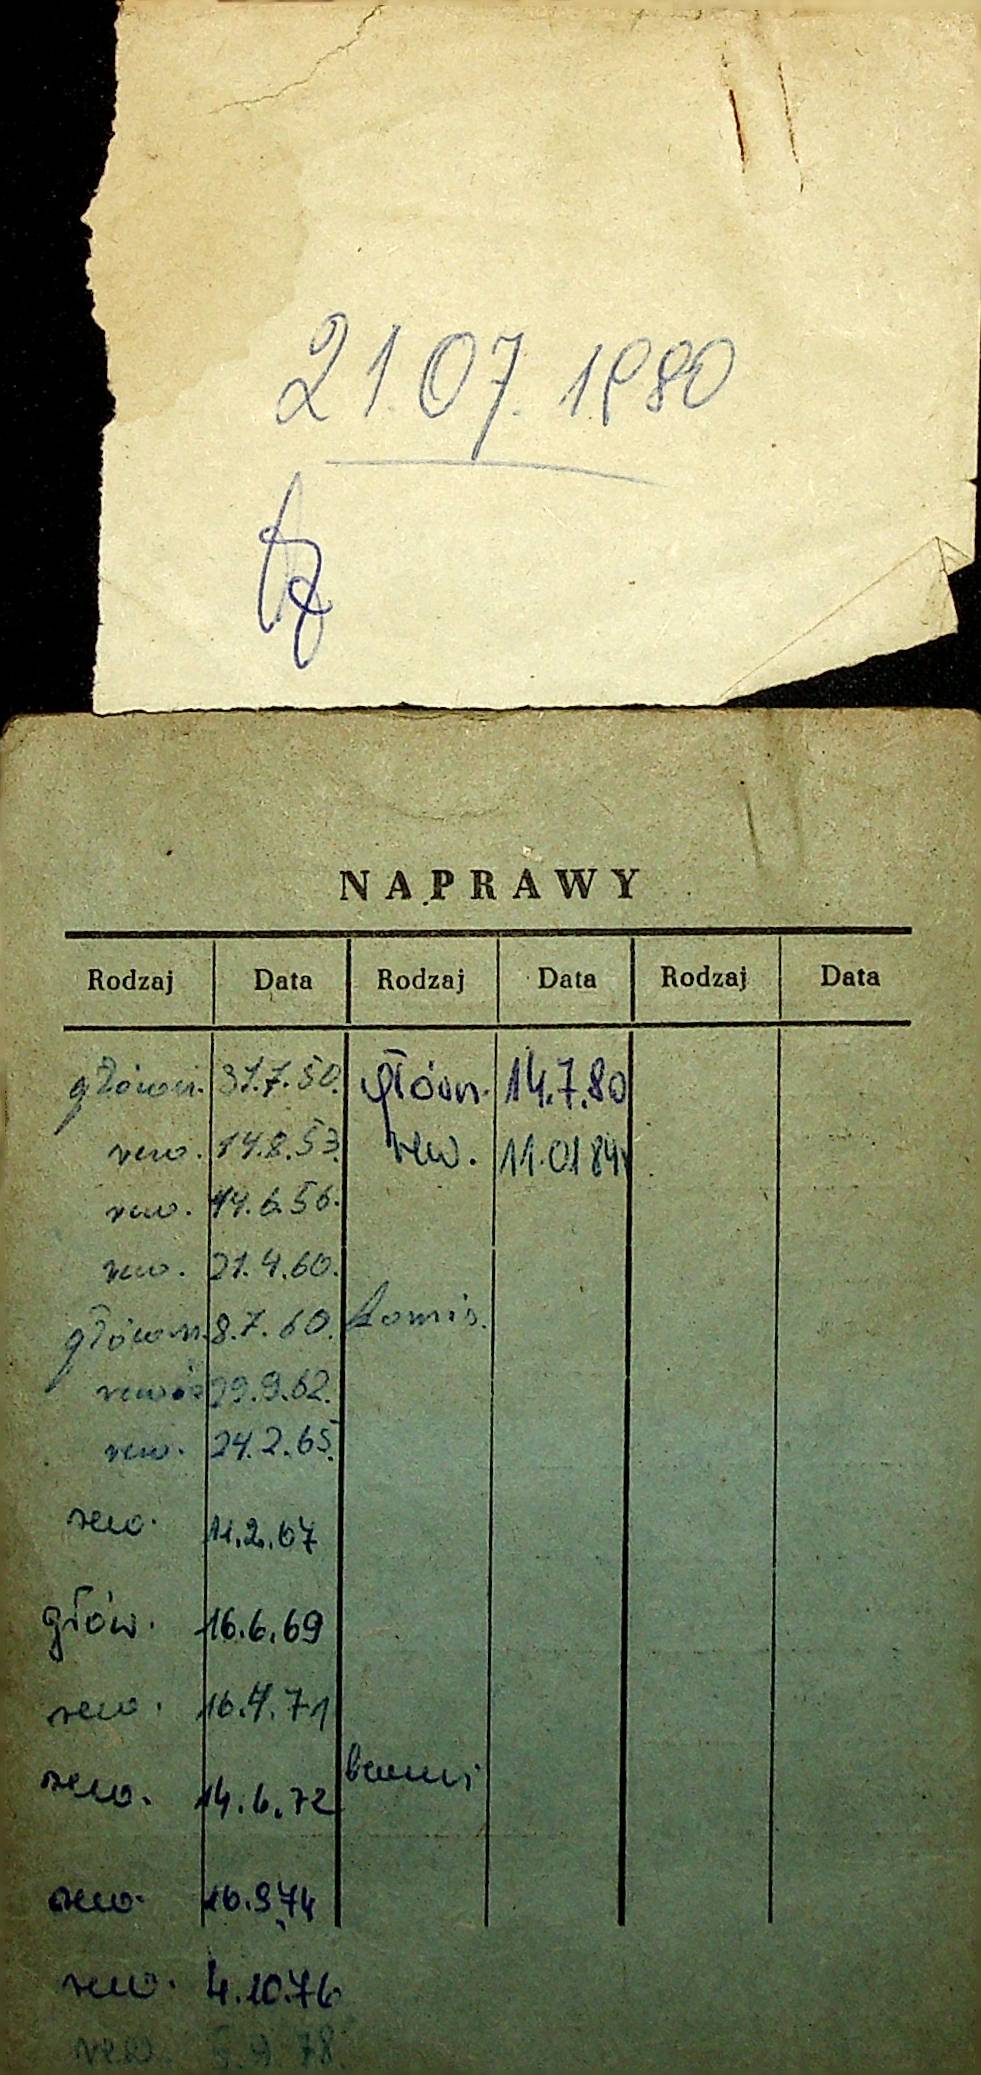 21.07.1980
NAPRAWY
Rodzaj Data Rodzaj Data Rodzaj Data
główn. 31.7.50. główn. 14.7.80
rew. 14.8.53. rew. 11.01.84
rew. 14.6.56.
rew. 21.4.60.
główn. 8.7.60.
29.9.62.
rew. 24.2.65.
rew. 11.2.67
głów. 16.6.69
rew. 16.4.71
rew. 14.6.72
rew. 16.9.74
rew. 4.10.76
rew. 78.